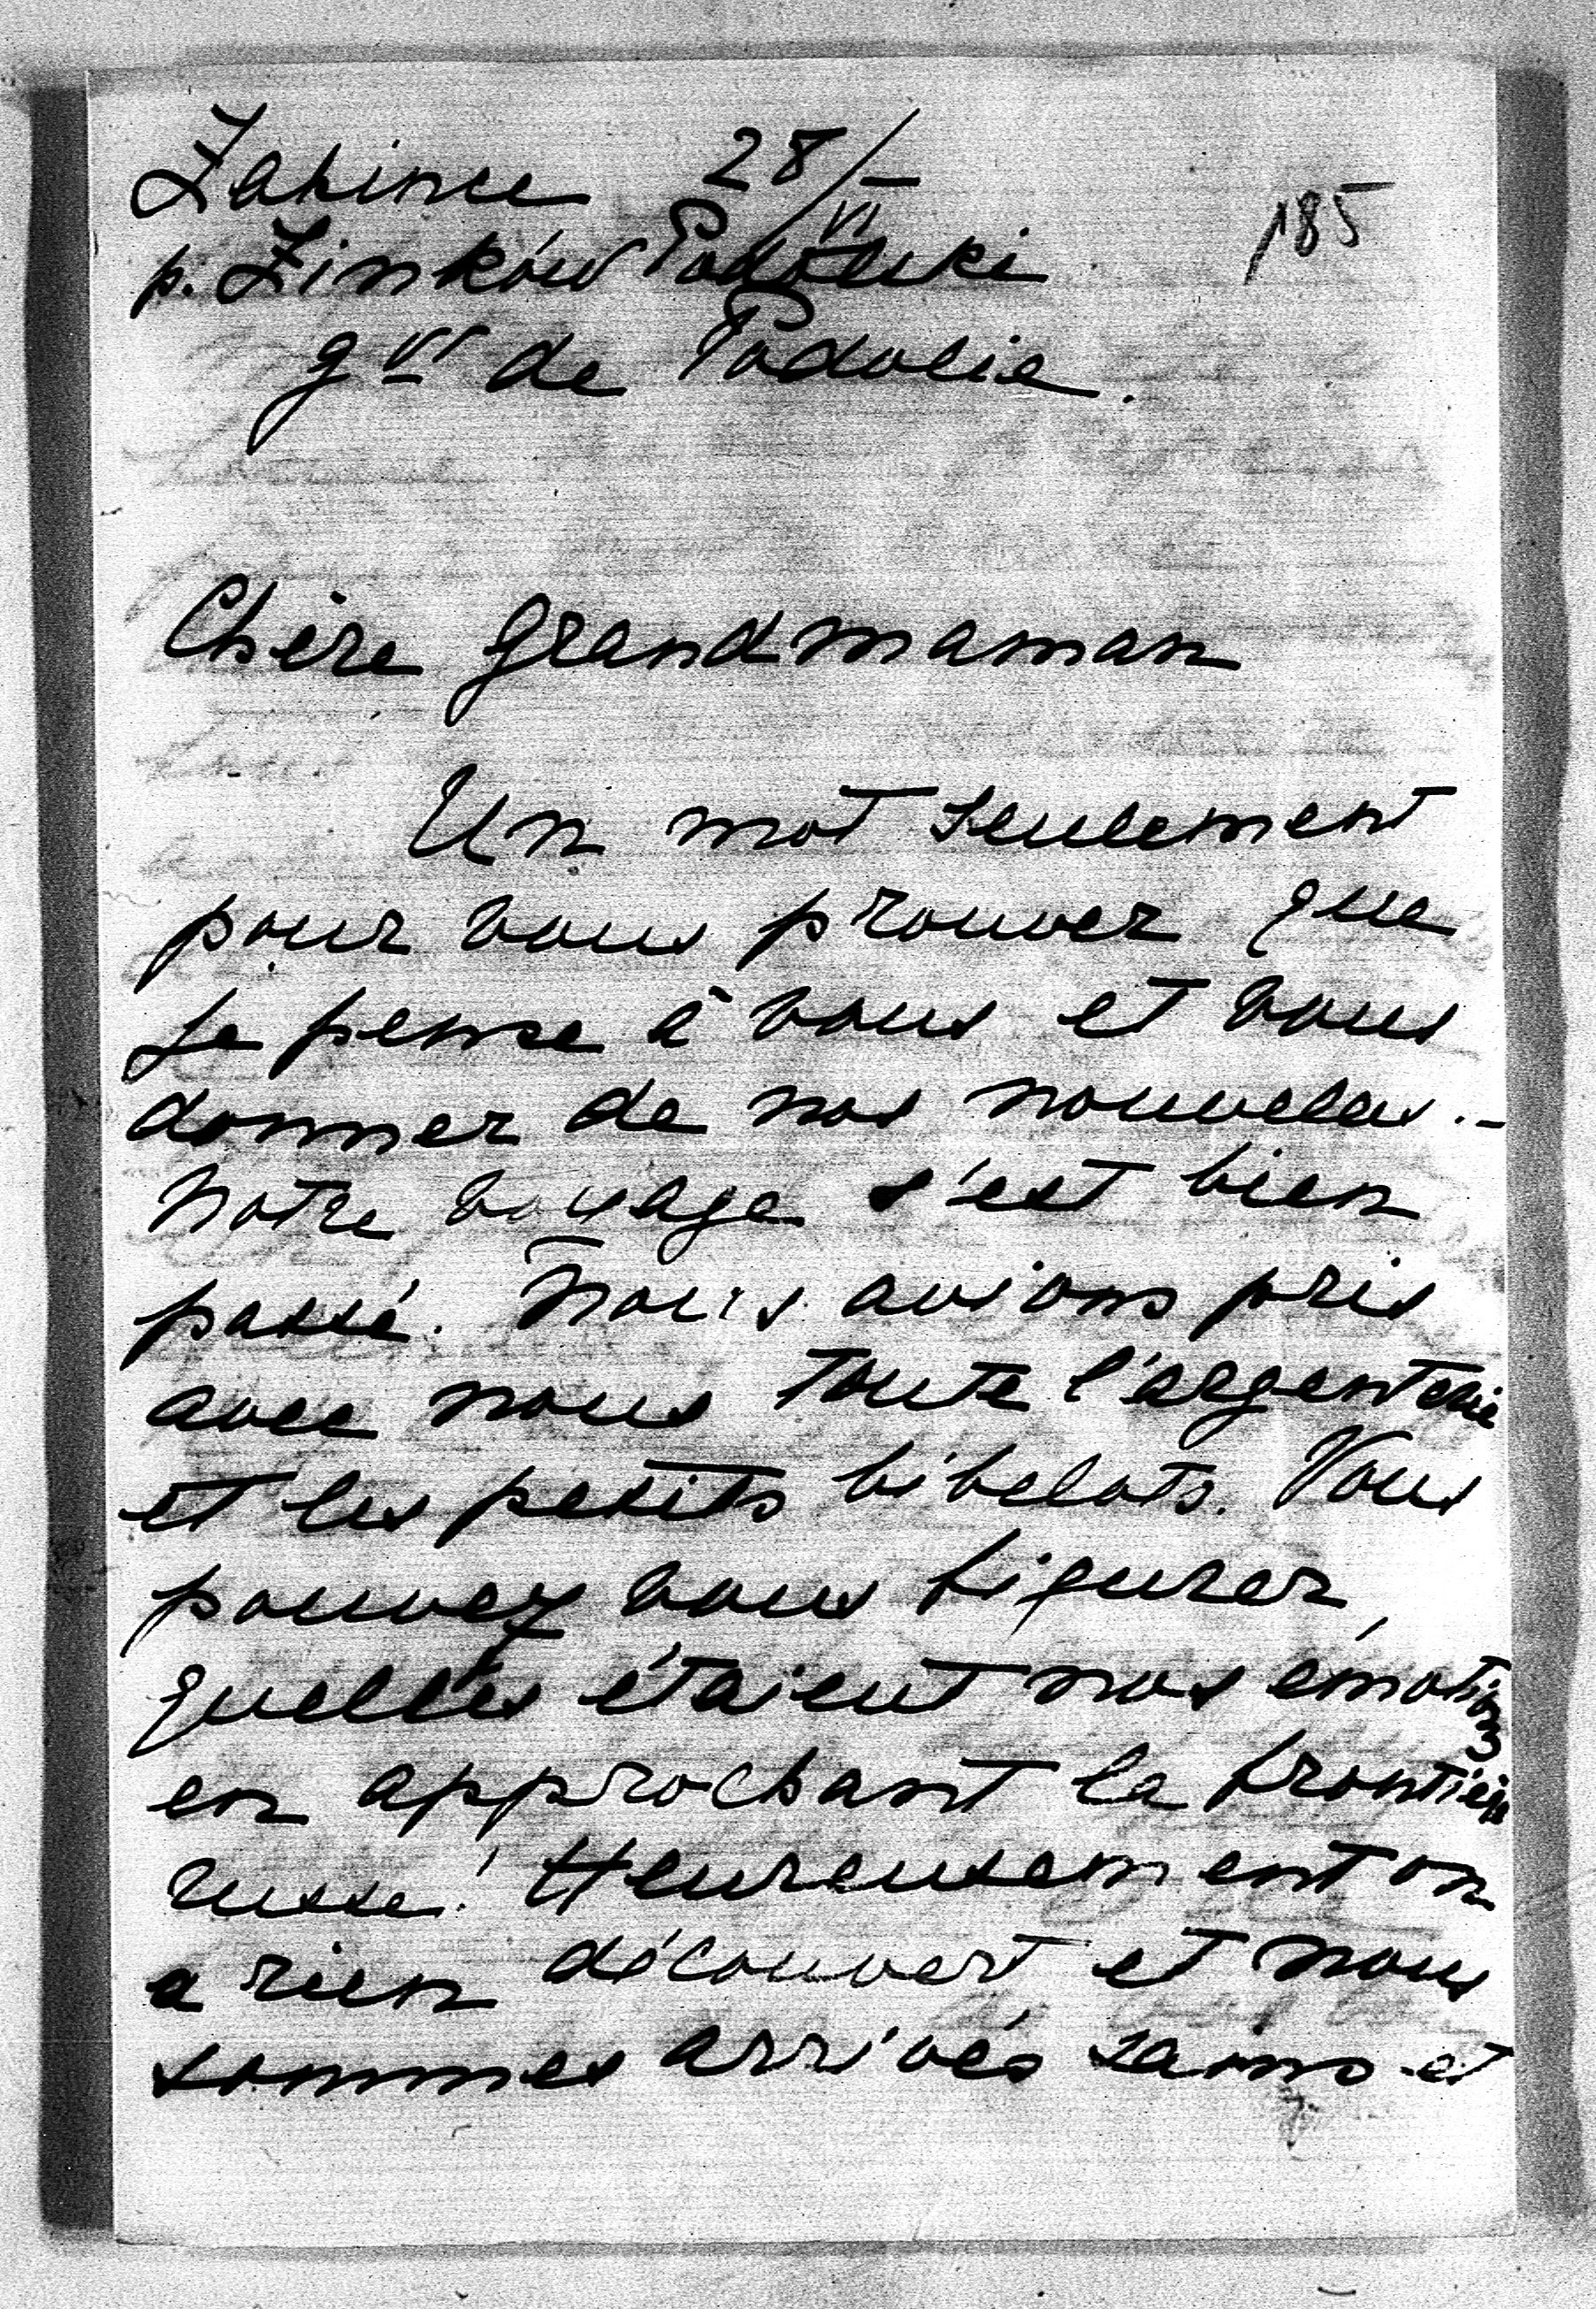 Zakince 28/VI
185
p. Zinków Podolski
gvt de Podolie.
Chère Grandmaman
Un mot seulement
pour vous prouver que
je pense à vous et vous
donner de nos nouvelles.-
Notre voyage s'est bien
passé. Nous avions pris
avec nous toute l'argenterie
et les petits bibelots. Vous
pouvez vous figurer,
quelles étaient nos émotions
en approchant la frontière
russe! Heureusement on
a rien découvert et nous
sommes arrivés sains et